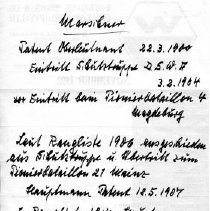 Marschner
Patent Oberleutnant 22.3.1900
Eintritt Schutztruppe D.S.W.A
3.2.1904
vor Eintritt beim Pionierbataillon 4
Magdeburg
Laut Rangliste 1906 ausgeschieden
aus Schutztruppe u. Übertritt zum
Pionierbataillon 21 Mainz
Hauptmann Patent 18.5.1907